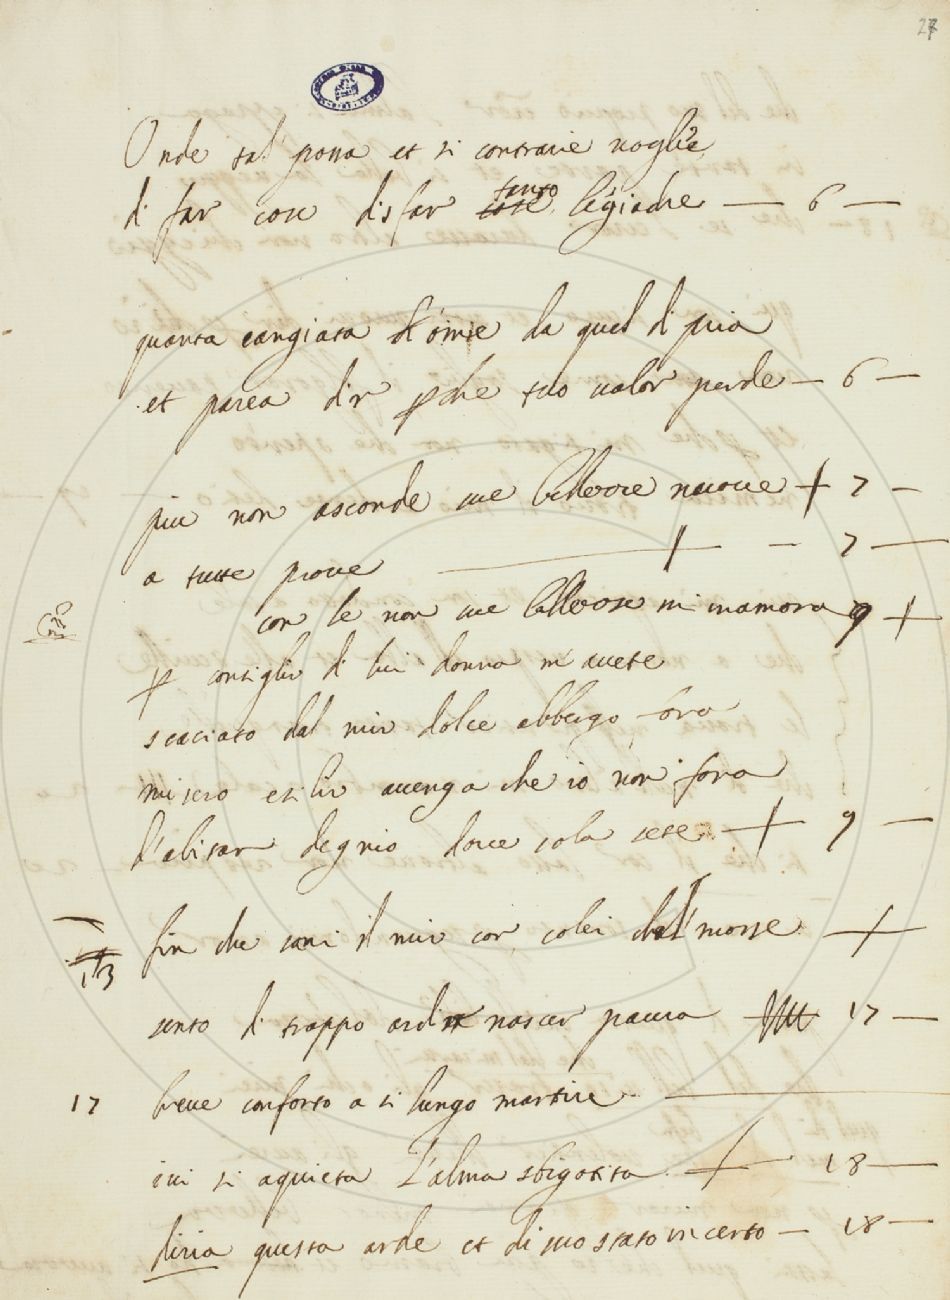 27
Onde tal' possa et si contrarie voglie
di far cose disfar tanto legiadre — 6 —
quanta cangiata oime da quel di pria
et parea dir p che tuo valor perde — 6 —
piu non asconde sue bellezze nuove + 7 —
a tutte prove + — 7 —
con le non sue bellezze m' inamora 9 +
p consiglio di lui donna m' avete
scaciato dal mio dolce albergo fora
misero esilio avenga che io non fora
d'abitar degnio dove sola sete + 9 —
fin che sani il mio cor colei ch'el morse +
13
sento di troppo ardir nascer paura 17 —
17 breve conforto a si lungo martire —
ivi si aquieta l'alma sbigotita + 18 —
diria questa arde et di suo stato incerto — 18 —